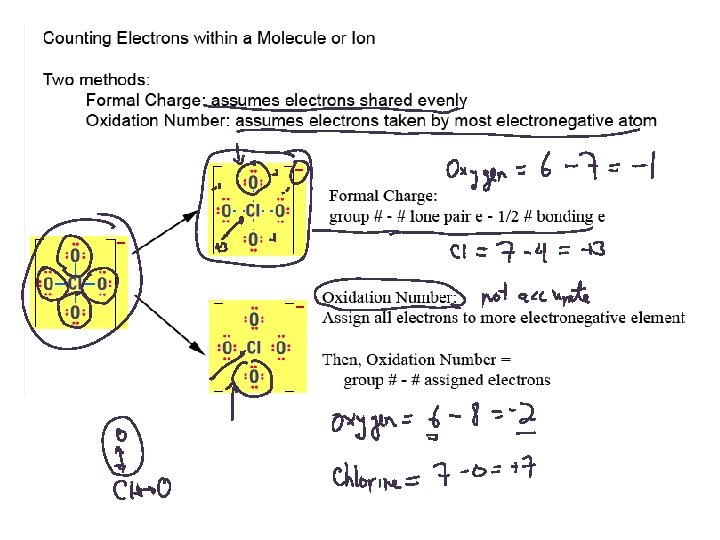 Counting Electrons within a Molecule or Ion
Two methods:
Formal Charge: assumes electrons shared evenly
Oxidation Number: assumes electrons taken by most electronegative atom
Oxygen = 6 - 7 = -1
Formal Charge:
group # - # lone pair e - 1/2 # bonding e
Cl = 7 - 4 = +3
:O:
:O - Cl - O:
:O:
-
-1
-1
-1
-1
+3
O
O - Cl - O
O
-
Oxidation Number: not accurate
Assign all electrons to more electronegative element
:O:
:O: Cl :O:
:O:
-
Then, Oxidation Number =
group # - # assigned electrons
Oxygen = 6 - 8 = -2
Chlorine = 7 - 0 = +7
O
Cl→O